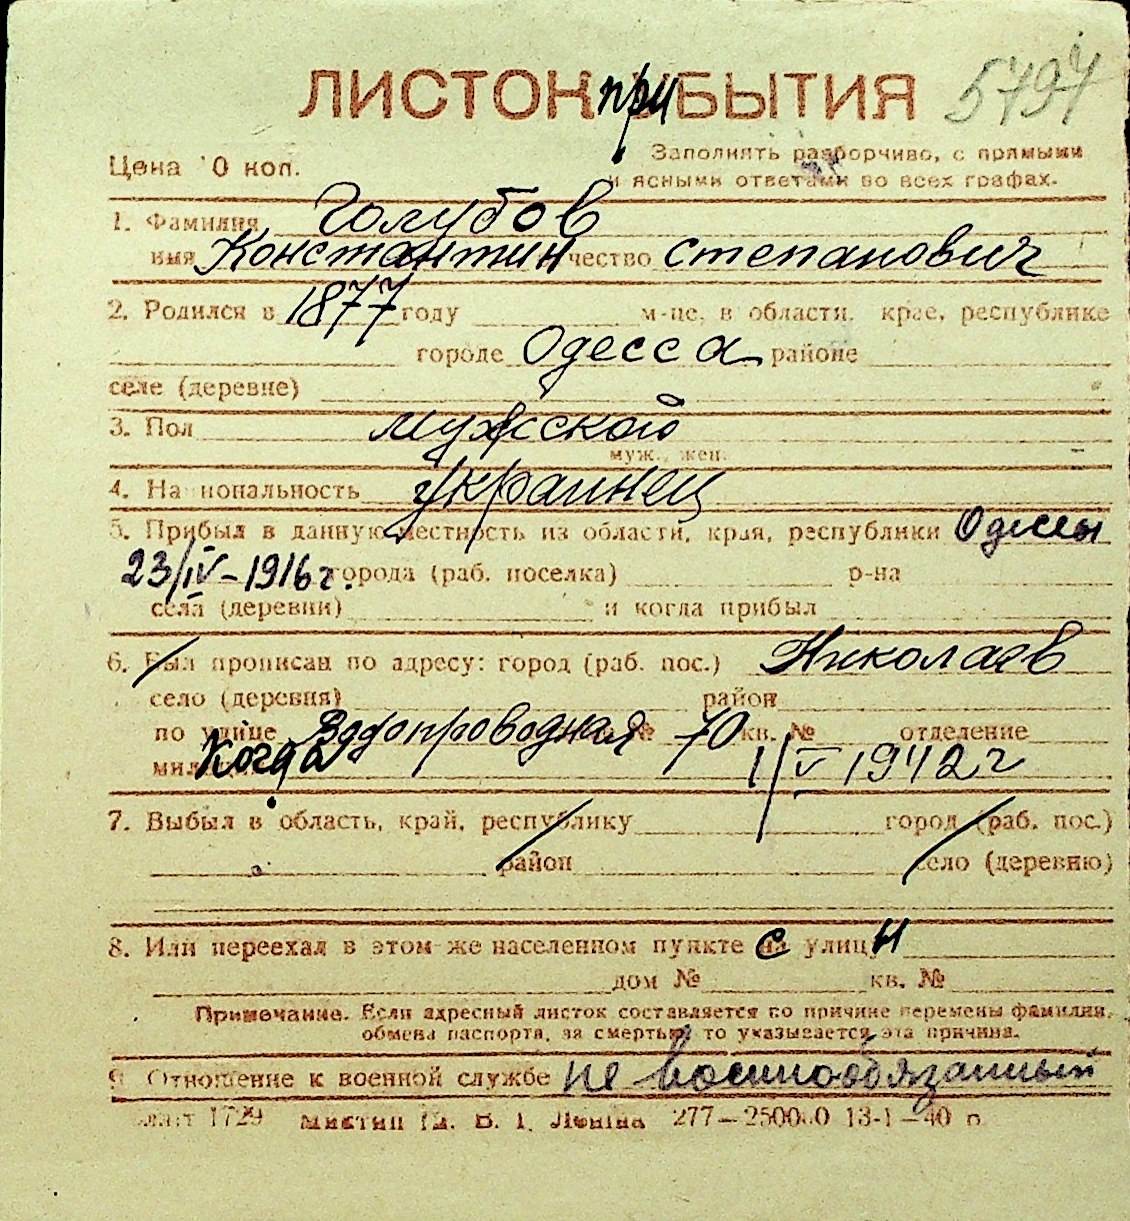 ЛИСТОК при УБЫТИЯ 5797
Цена 10 коп. Заполнять разборчиво, с прямыми
и ясными ответами во всех графах.
1. Фамилия Голубов
имя Константин отчество Степанович
2. Родился в 1877 году м-це, в области, крае, республике
городе Одесса районе
селе (деревне)
3. Пол мужской
муж., жен.
4. Национальность украинец
5. Прибыл в данную местность из области, края, республики Одессы
23/IV-1916 г. города (раб. поселка) р-на
села (деревни) и когда прибыл
6. Был прописан по адресу: город (раб. пос.) Николаев
село (деревня) район
по улице Водопроводная № 70 кв. № отделение
Когда 1/V 1942 г
7. Выбыл в область, край, республику город (раб. пос.)
район село (деревню)
8. Или переехал в этом же населенном пункте с на улицу и
дом № кв. №
Примечание. Если адресный листок составляется по причине перемены фамилии,
обмена паспорта, за смертью то указывается эта причина.
9. Отношение к военной службе не военнообязанный
1729 Ленина 277—250000 13-I—40 г.